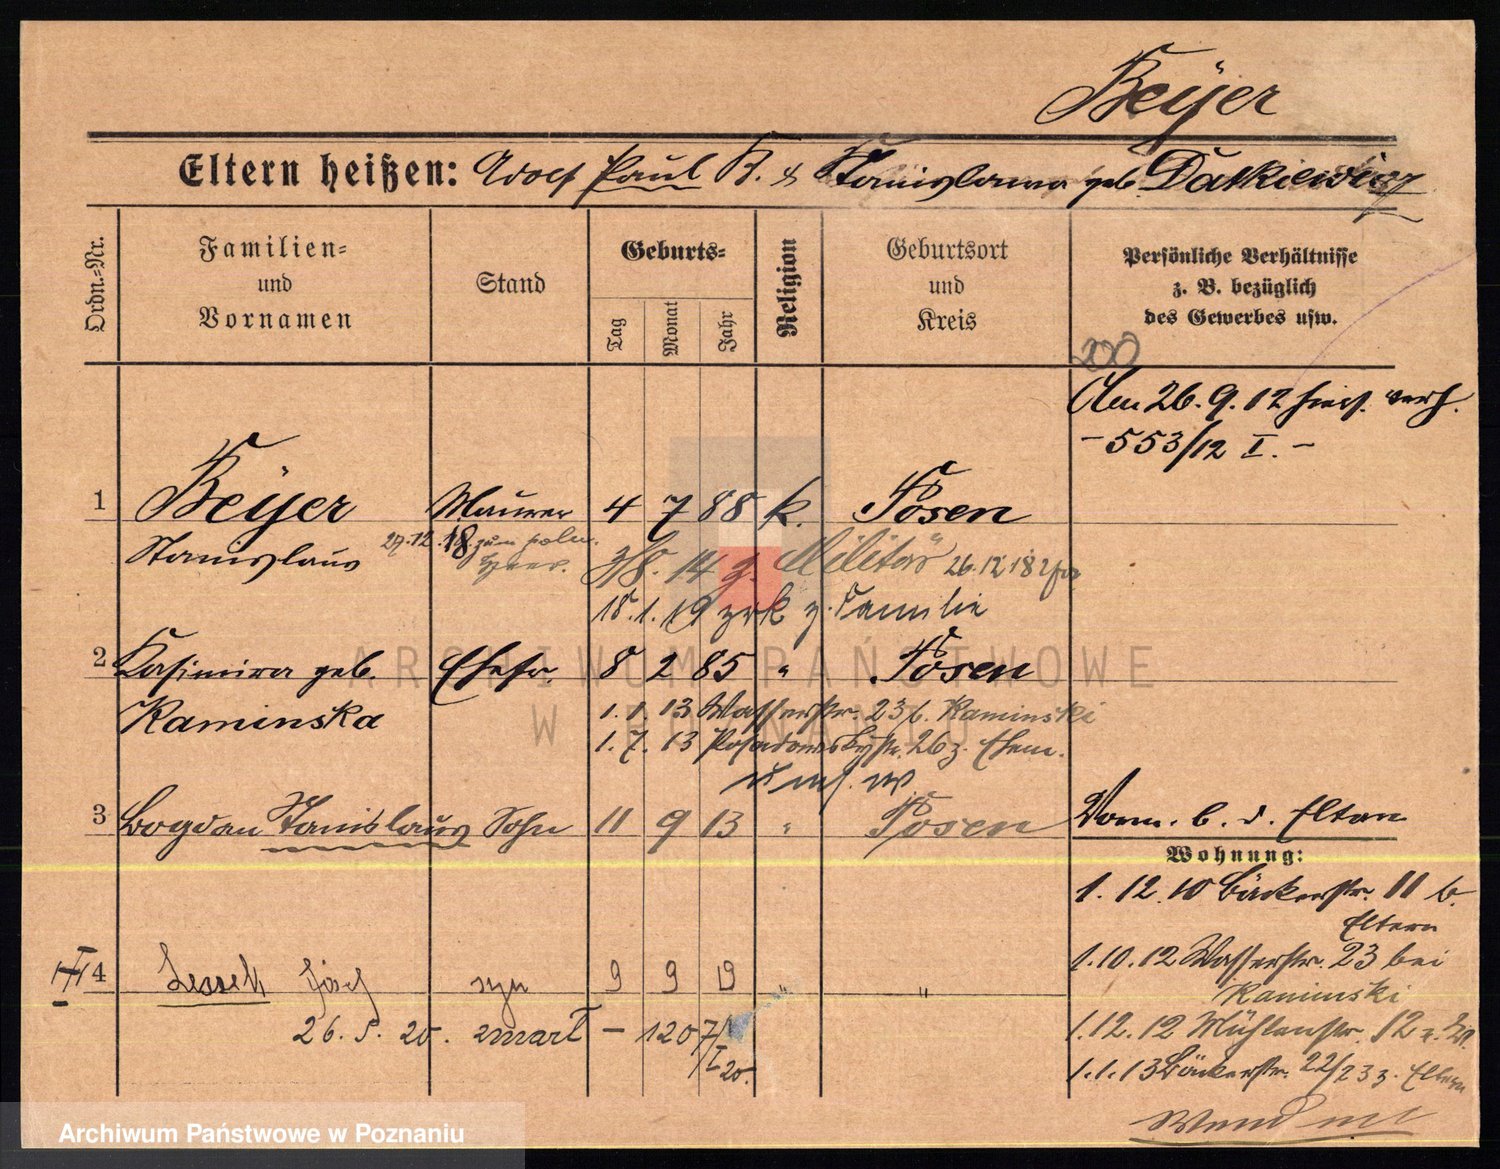 Beÿer
Eltern heißen: Adolf Paul B. & Stanislawa geb. Datkiewicz
Ordn.-Nr.
Familien- und Vornamen
Stand
Geburts-
Tag
Monat
Jahr
Religion
Geburtsort und Kreis
Persönliche Verhältnisse z. B. bezüglich des Gewerbes usw.
200
Am 26.9.12 hies. verh.
- 553/12 I. -
1 Beÿer Maurer 4 7 88 k. Posen
Stanislaus 27.12.18 zum poln. Heer. 3/8. 14 z. Militär 26.12.18
18.1.19 zrk z. Familie
2 Kasimira geb. Ehefr. 8 2 85 " Posen
Kaminska
1.1.13 Wasserstr. 23 b. Kaminski
1.7.13 Posadowskystr. 26 z. Ehem.
3 Bogdan Stanislaus Sohn 11 9 13 " Posen
Vorm. b. d. Eltern
Wohnung:
1.12.10 Bäckerstr. 11 b. Eltern
1.10.12 Wasserstr. 23 bei Kaminski
1.12.12 Mühlenstr. 12
1.1.13 Bäckerstr. 22/23 z. Eltern
Wend
4 Leszek Józef syn 9 9 19 " "
26.5.20. zmarł - 1207/I 20.
ARCHIWUM PAŃSTWOWE
W POZNANIU
Archiwum Państwowe w Poznaniu